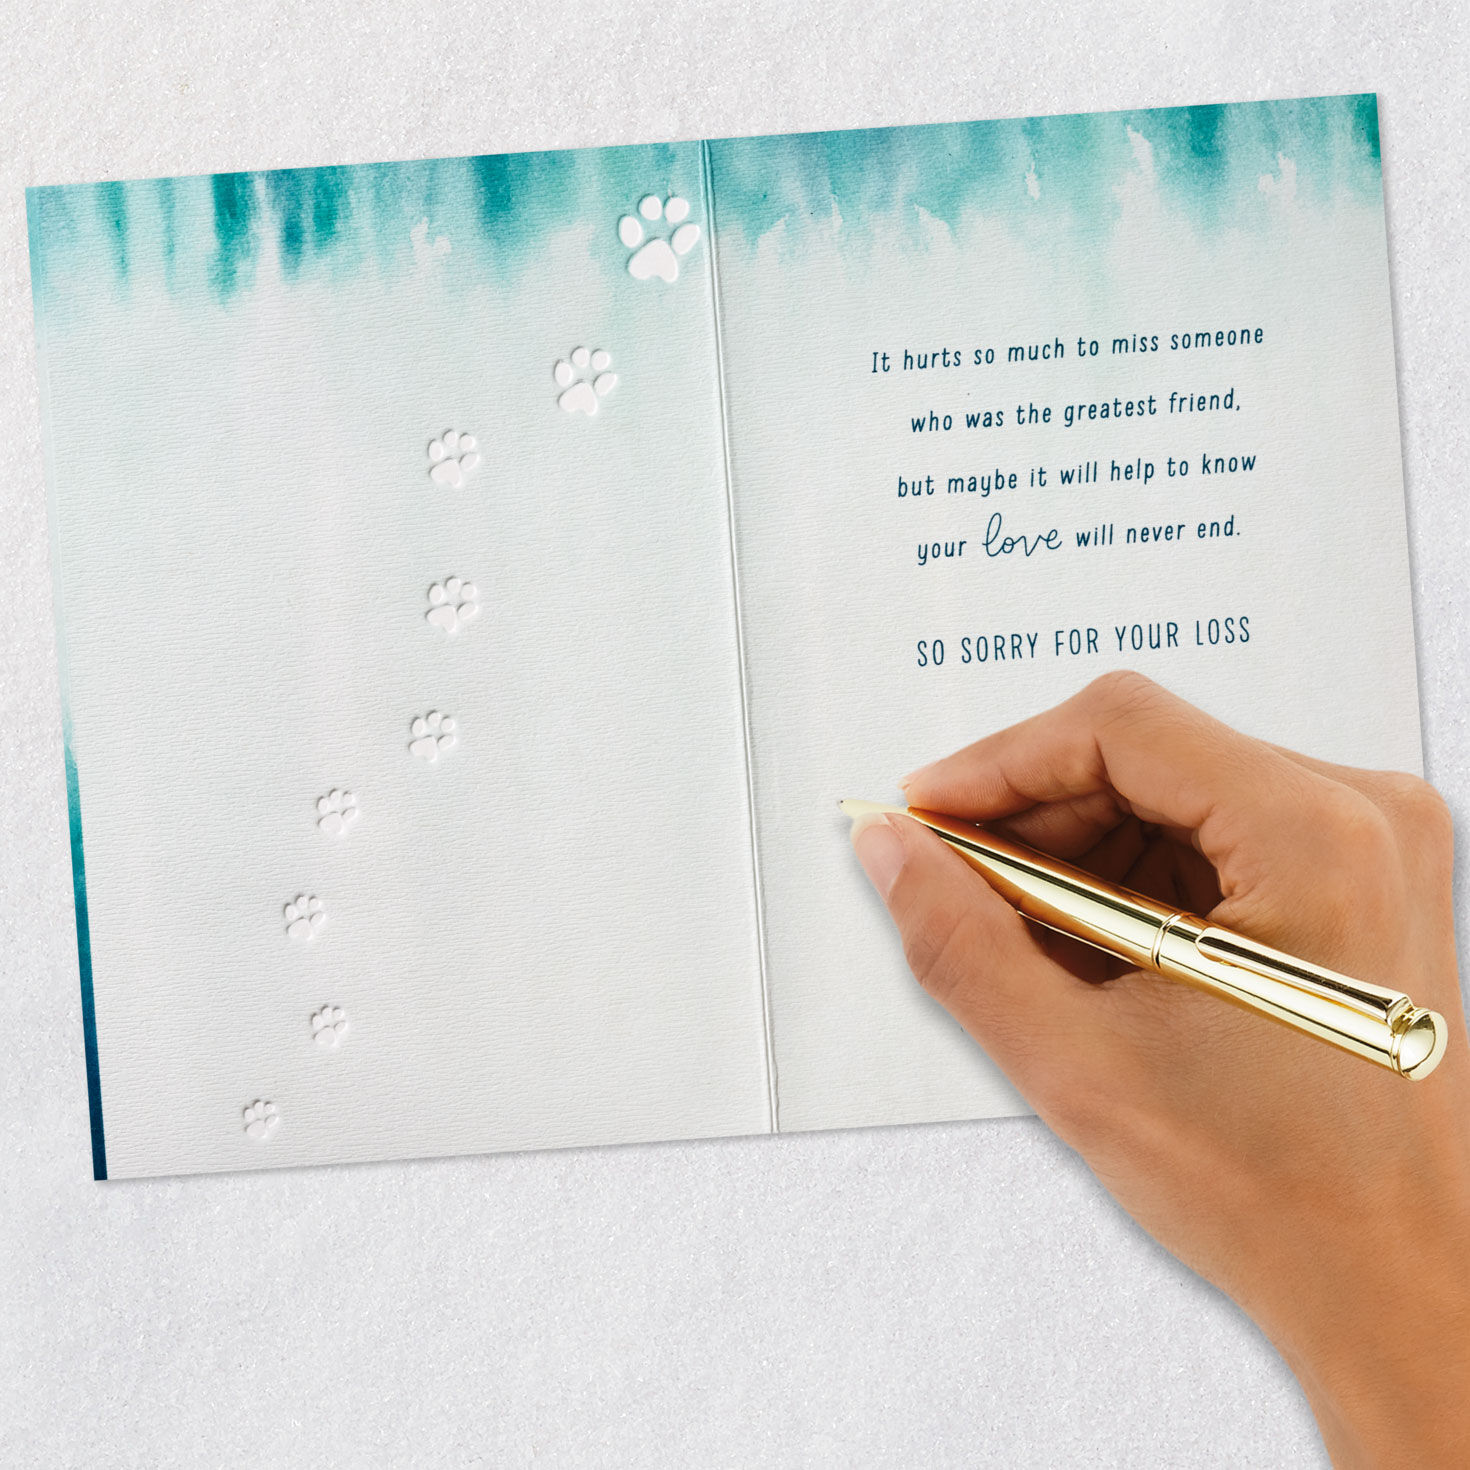 It hurts so much to miss someone
who was the greatest friend,
but maybe it will help to know
your love will never end.
SO SORRY FOR YOUR LOSS